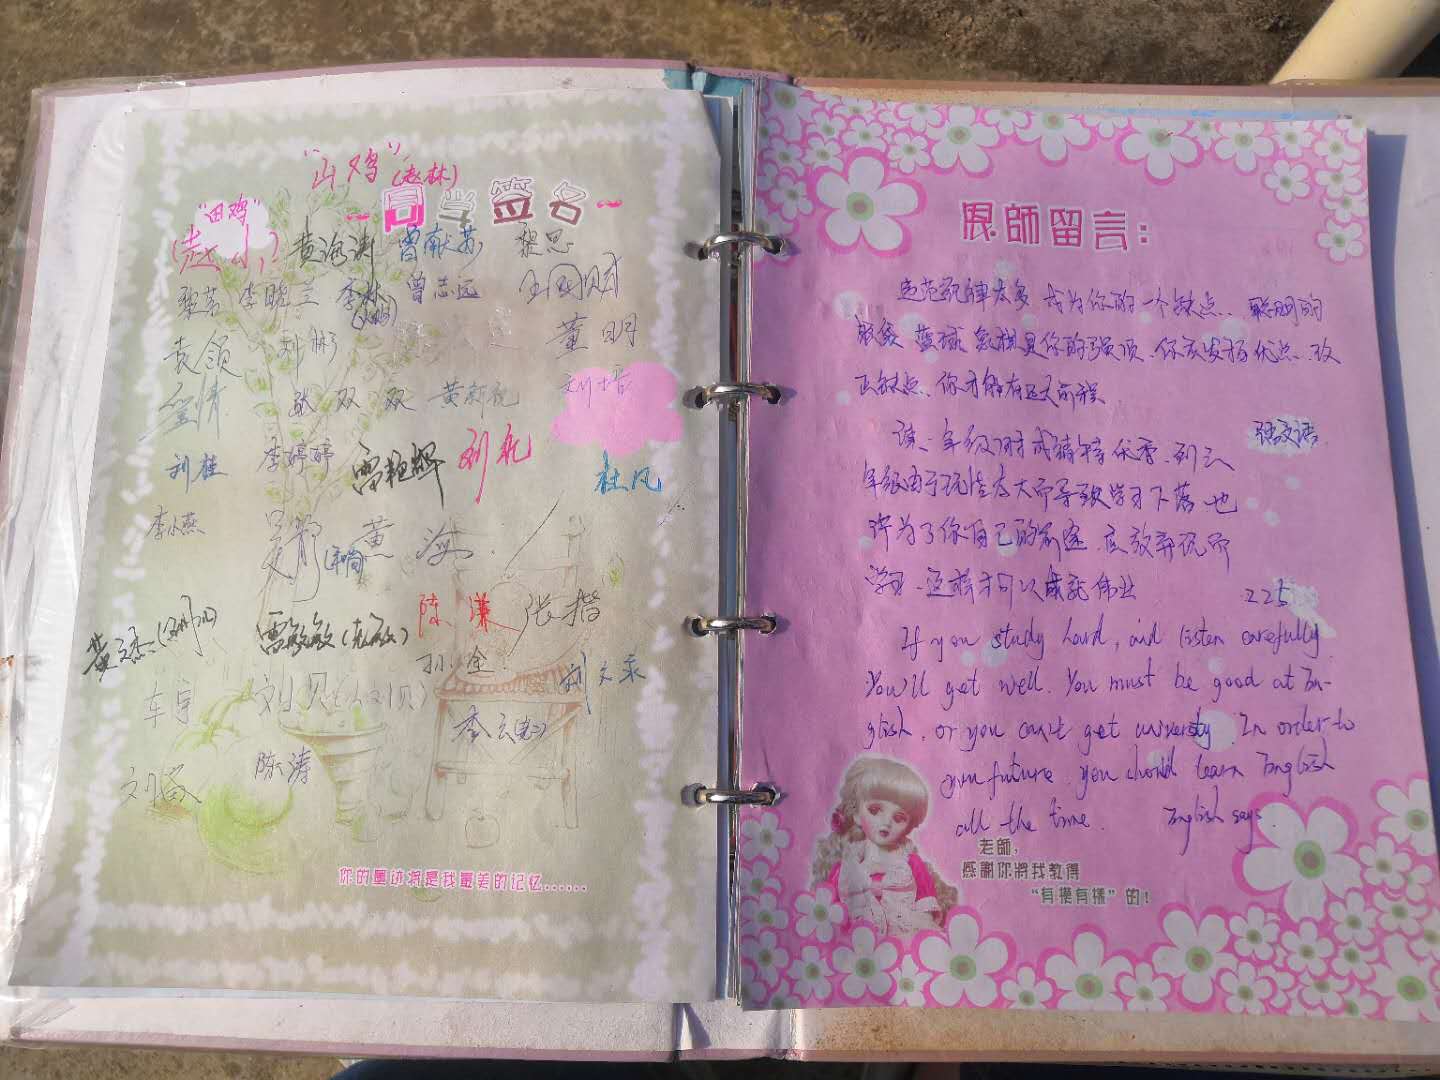 "山鸡"
(赵林)
~同学签名~
"田鸡"
(赵小)
黄海涛 曾献芬 黎思
黎芳 李晓兰 李林 曾志远 王国财
袁领 刘彬 董明
情 双双 黄新花 刘培
刘桂 李婷婷 雷艳辉 刘礼 杜凡
李小燕 黄海
陈谦 张揩
黄 雷敏敏 孙全 刘文
车宇 刘贝 李云
陈涛
刘苗
你的墨迹将是我最美的记忆......
恩師留言:
违范纪律太多 成为你的一个缺点. 聪明的
脑袋 篮球 象棋是你的强项. 你应发扬优点. 改
正缺点. 你才能有远大前程.
谈: 一年级时成绩特优秀. 到三
年级由于玩性太大而导致学习下落. 也
许为了你自己的前途. 应放弃玩而
学习. 这样才可以成就伟业 225
If you study hard, and listen carefully.
You'll get well. You must be good at En-
glish. or you can't get university. In order to
own future. you should learn English
all the time. English says.
老師,
感謝你將我教得
"有模有樣"的!